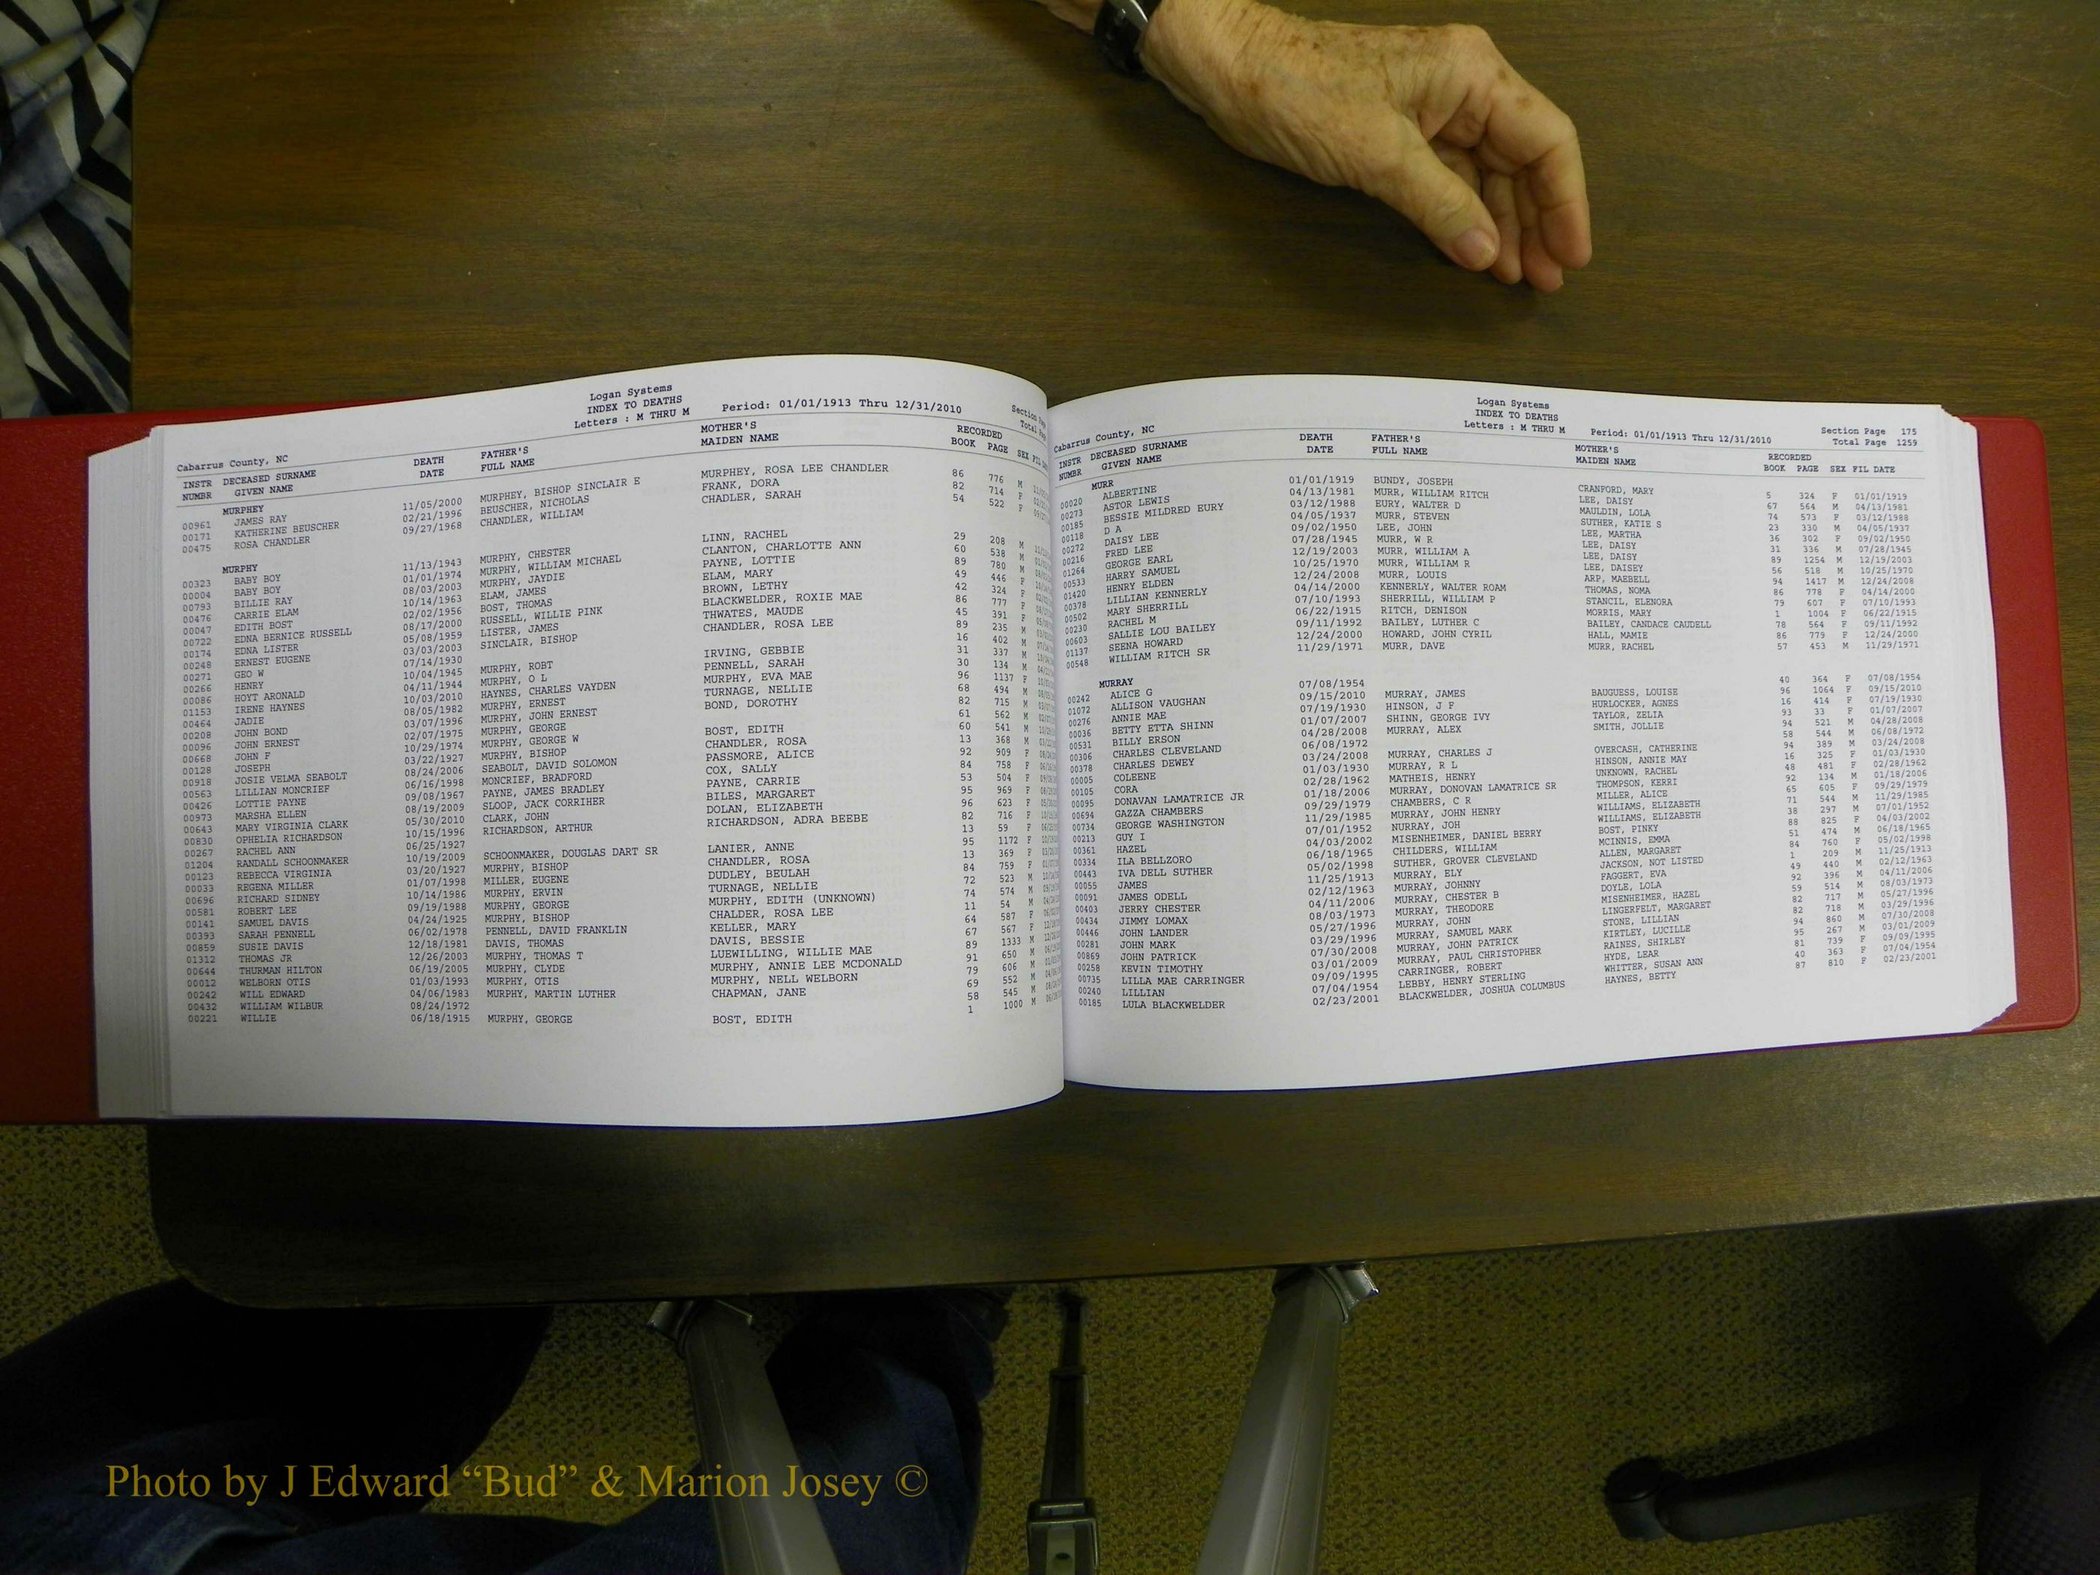 Logan Systems
INDEX TO DEATHS
Letters : M THRU M Period: 01/01/1913 Thru 12/31/2010
Cabarrus County, NC
INSTR DECEASED SURNAME DEATH FATHER'S MOTHER'S RECORDED
NUMBR GIVEN NAME DATE FULL NAME MAIDEN NAME BOOK PAGE SEX FIL
MURPHEY
00961 JAMES RAY 11/05/2000 MURPHEY, BISHOP SINCLAIR E MURPHEY, ROSA LEE CHANDLER 86 776 M
00171 KATHERINE BEUSCHER 02/21/1996 BEUSCHER, NICHOLAS FRANK, DORA 82 714 F
00475 ROSA CHANDLER 09/27/1968 CHANDLER, WILLIAM CHADLER, SARAH 54 522 F
MURPHY
00323 BABY BOY 11/13/1943 MURPHY, CHESTER LINN, RACHEL 29 208 M
00004 BABY BOY 01/01/1974 MURPHY, WILLIAM MICHAEL CLANTON, CHARLOTTE ANN 60 538 M
00793 BILLIE RAY 08/03/2003 MURPHY, JAYDIE PAYNE, LOTTIE 89 780 M
00476 CARRIE ELAM 10/14/1963 ELAM, JAMES ELAM, MARY 49 446 F
00047 EDITH BOST 02/02/1956 BOST, THOMAS BROWN, LETHY 42 324 F
00722 EDNA BERNICE RUSSELL 08/17/2000 RUSSELL, WILLIE PINK BLACKWELDER, ROXIE MAE 86 777 F
00174 EDNA LISTER 05/08/1959 LISTER, JAMES THWATES, MAUDE 45 391 F
00248 ERNEST EUGENE 03/03/2003 SINCLAIR, BISHOP CHANDLER, ROSA LEE 89 235 M
00271 GEO W 07/14/1930 16 402 M
00266 HENRY 10/04/1945 MURPHY, ROBT IRVING, GEBBIE 31 337 M
00086 HOYT ARONALD 04/11/1944 MURPHY, O L PENNELL, SARAH 30 134 M
01153 IRENE HAYNES 10/03/2010 HAYNES, CHARLES VAYDEN MURPHY, EVA MAE 96 1137 F
00464 JADIE 08/05/1982 MURPHY, ERNEST TURNAGE, NELLIE 68 494 M
00208 JOHN BOND 03/07/1996 MURPHY, JOHN ERNEST BOND, DOROTHY 82 715 M
00096 JOHN ERNEST 02/07/1975 MURPHY, GEORGE 61 562 M
00668 JOHN F 10/29/1974 MURPHY, GEORGE W BOST, EDITH 60 541 M
00128 JOSEPH 03/22/1927 MURPHY, BISHOP CHANDLER, ROSA 13 368 M
00918 JOSIE VELMA SEABOLT 08/24/2006 SEABOLT, DAVID SOLOMON PASSMORE, ALICE 92 909 F
00563 LILLIAN MONCRIEF 06/16/1998 MONCRIEF, BRADFORD COX, SALLY 84 758 F
00426 LOTTIE PAYNE 09/08/1967 PAYNE, JAMES BRADLEY PAYNE, CARRIE 53 504 F
00973 MARSHA ELLEN 08/19/2009 SLOOP, JACK CORRIHER BILES, MARGARET 95 969 F
00643 MARY VIRGINIA CLARK 05/30/2010 CLARK, JOHN DOLAN, ELIZABETH 96 623 F
00830 OPHELIA RICHARDSON 10/15/1996 RICHARDSON, ARTHUR RICHARDSON, ADRA BEEBE 82 716 F
00267 RACHEL ANN 06/25/1927 13 59 F
01204 RANDALL SCHOONMAKER 10/19/2009 SCHOONMAKER, DOUGLAS DART SR LANIER, ANNE 95 1172 F
00123 REBECCA VIRGINIA 03/20/1927 MURPHY, BISHOP CHANDLER, ROSA 13 369 F
00033 REGENA MILLER 01/07/1998 MILLER, EUGENE DUDLEY, BEULAH 84 759 F
00696 RICHARD SIDNEY 10/14/1986 MURPHY, ERVIN TURNAGE, NELLIE 72 523 M
00581 ROBERT LEE 09/19/1988 MURPHY, GEORGE MURPHY, EDITH (UNKNOWN) 74 574 M
00141 SAMUEL DAVIS 04/24/1925 MURPHY, BISHOP CHALDER, ROSA LEE 11 54 M
00393 SARAH PENNELL 06/02/1978 PENNELL, DAVID FRANKLIN KELLER, MARY 64 587 F
00859 SUSIE DAVIS 12/18/1981 DAVIS, THOMAS DAVIS, BESSIE 67 567 F
01312 THOMAS JR 12/26/2003 MURPHY, THOMAS T LUEWILLING, WILLIE MAE 89 1333 M
00644 THURMAN HILTON 06/19/2005 MURPHY, CLYDE MURPHY, ANNIE LEE MCDONALD 91 650 M
00012 WELBORN OTIS 01/03/1993 MURPHY, OTIS MURPHY, NELL WELBORN 79 606 M
00242 WILL EDWARD 04/06/1983 MURPHY, MARTIN LUTHER CHAPMAN, JANE 69 552 M
00432 WILLIAM WILBUR 08/24/1972 58 545 M
00221 WILLIE 06/18/1915 MURPHY, GEORGE BOST, EDITH 1 1000 M
Logan Systems
INDEX TO DEATHS
Letters : M THRU M Period: 01/01/1913 Thru 12/31/2010
Section Page 175
Total Page 1259
Cabarrus County, NC
INSTR DECEASED SURNAME DEATH FATHER'S MOTHER'S RECORDED
NUMBR GIVEN NAME DATE FULL NAME MAIDEN NAME BOOK PAGE SEX FIL DATE
MURR
00020 ALBERTINE 01/01/1919 BUNDY, JOSEPH CRANFORD, MARY 5 324 F 01/01/1919
00273 ASTOR LEWIS 04/13/1981 MURR, WILLIAM RITCH LEE, DAISY 67 564 M 04/13/1981
00185 BESSIE MILDRED EURY 03/12/1988 EURY, WALTER D MAULDIN, LOLA 74 573 F 03/12/1988
00118 D A 04/05/1937 MURR, STEVEN SUTHER, KATIE S 23 330 M 04/05/1937
00272 DAISY LEE 09/02/1950 LEE, JOHN LEE, MARTHA 36 302 F 09/02/1950
00216 FRED LEE 07/28/1945 MURR, W R LEE, DAISY 31 336 M 07/28/1945
01264 GEORGE EARL 12/19/2003 MURR, WILLIAM A LEE, DAISY 89 1254 M 12/19/2003
00533 HARRY SAMUEL 10/25/1970 MURR, WILLIAM R LEE, DAISEY 56 518 M 10/25/1970
01420 HENRY ELDEN 12/24/2008 MURR, LOUIS ARP, MAEBELL 94 1417 M 12/24/2008
00378 LILLIAN KENNERLY 04/14/2000 KENNERLY, WALTER ROAM THOMAS, NOMA 86 778 F 04/14/2000
00502 MARY SHERRILL 07/10/1993 SHERRILL, WILLIAM P STANCIL, ELENORA 79 607 F 07/10/1993
00230 RACHEL M 06/22/1915 RITCH, DENISON MORRIS, MARY 1 1004 F 06/22/1915
00603 SALLIE LOU BAILEY 09/11/1992 BAILEY, LUTHER C BAILEY, CANDACE CAUDELL 78 564 F 09/11/1992
01137 SEENA HOWARD 12/24/2000 HOWARD, JOHN CYRIL HALL, MAMIE 86 779 F 12/24/2000
00548 WILLIAM RITCH SR 11/29/1971 MURR, DAVE MURR, RACHEL 57 453 M 11/29/1971
MURRAY
00242 ALICE G 07/08/1954 40 364 F 07/08/1954
01072 ALLISON VAUGHAN 09/15/2010 MURRAY, JAMES BAUGUESS, LOUISE 96 1064 F 09/15/2010
00276 ANNIE MAE 07/19/1930 HINSON, J F HURLOCKER, AGNES 16 414 F 07/19/1930
00036 BETTY ETTA SHINN 01/07/2007 SHINN, GEORGE IVY TAYLOR, ZELIA 93 33 F 01/07/2007
00531 BILLY ERSON 04/28/2008 MURRAY, ALEX SMITH, JOLLIE 94 521 M 04/28/2008
00306 CHARLES CLEVELAND 06/08/1972 58 544 M 06/08/1972
00378 CHARLES DEWEY 03/24/2008 MURRAY, CHARLES J OVERCASH, CATHERINE 94 389 M 03/24/2008
00005 COLEENE 01/03/1930 MURRAY, R L HINSON, ANNIE MAY 16 325 F 01/03/1930
00105 CORA 02/28/1962 MATHEIS, HENRY UNKNOWN, RACHEL 48 481 F 02/28/1962
00095 DONAVAN LAMATRICE JR 01/18/2006 MURRAY, DONOVAN LAMATRICE SR THOMPSON, KERRI 92 134 M 01/18/2006
00694 GAZZA CHAMBERS 09/29/1979 CHAMBERS, C R MILLER, ALICE 65 605 F 09/29/1979
00734 GEORGE WASHINGTON 11/29/1985 MURRAY, JOHN HENRY WILLIAMS, ELIZABETH 71 544 M 11/29/1985
00213 GUY I 07/01/1952 NURRAY, JOH WILLIAMS, ELIZABETH 38 297 M 07/01/1952
00361 HAZEL 04/03/2002 MISENHEIMER, DANIEL BERRY BOST, PINKY 88 825 F 04/03/2002
00334 ILA BELLZORO 06/18/1965 CHILDERS, WILLIAM MCINNIS, EMMA 51 474 M 06/18/1965
00443 IVA DELL SUTHER 05/02/1998 SUTHER, GROVER CLEVELAND ALLEN, MARGARET 84 760 F 05/02/1998
00055 JAMES 11/25/1913 MURRAY, ELY JACKSON, NOT LISTED 1 209 M 11/25/1913
00091 JAMES ODELL 02/12/1963 MURRAY, JOHNNY FAGGERT, EVA 49 440 M 02/12/1963
00403 JERRY CHESTER 04/11/2006 MURRAY, CHESTER B DOYLE, LOLA 92 396 M 04/11/2006
00434 JIMMY LOMAX 08/03/1973 MURRAY, THEODORE MISENHEIMER, HAZEL 59 514 M 08/03/1973
00446 JOHN LANDER 05/27/1996 MURRAY, JOHN LINGERFELT, MARGARET 82 717 M 05/27/1996
00281 JOHN MARK 03/29/1996 MURRAY, SAMUEL MARK STONE, LILLIAN 82 718 M 03/29/1996
00869 JOHN PATRICK 07/30/2008 MURRAY, JOHN PATRICK KIRTLEY, LUCILLE 94 860 M 07/30/2008
00258 KEVIN TIMOTHY 03/01/2009 MURRAY, PAUL CHRISTOPHER RAINES, SHIRLEY 95 267 M 03/01/2009
00735 LILLA MAE CARRINGER 09/09/1995 CARRINGER, ROBERT HYDE, LEAR 81 739 F 09/09/1995
00240 LILLIAN 07/04/1954 LEBBY, HENRY STERLING WHITTER, SUSAN ANN 40 363 F 07/04/1954
00185 LULA BLACKWELDER 02/23/2001 BLACKWELDER, JOSHUA COLUMBUS HAYNES, BETTY 87 810 F 02/23/2001
Photo by J Edward “Bud” & Marion Josey ©